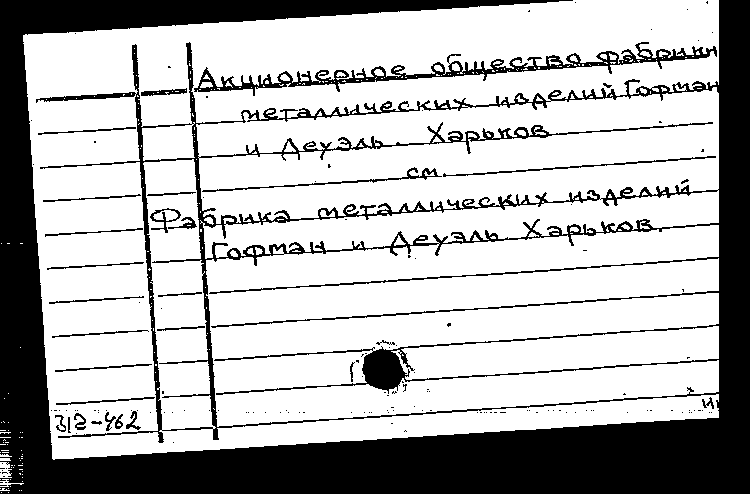 Акционерное общество фабрики
металлических изделий Гофман
и Деуэль. Харьков
см.
Фабрика металлических изделий
Гофман и Деуэль Харьков.
312-462